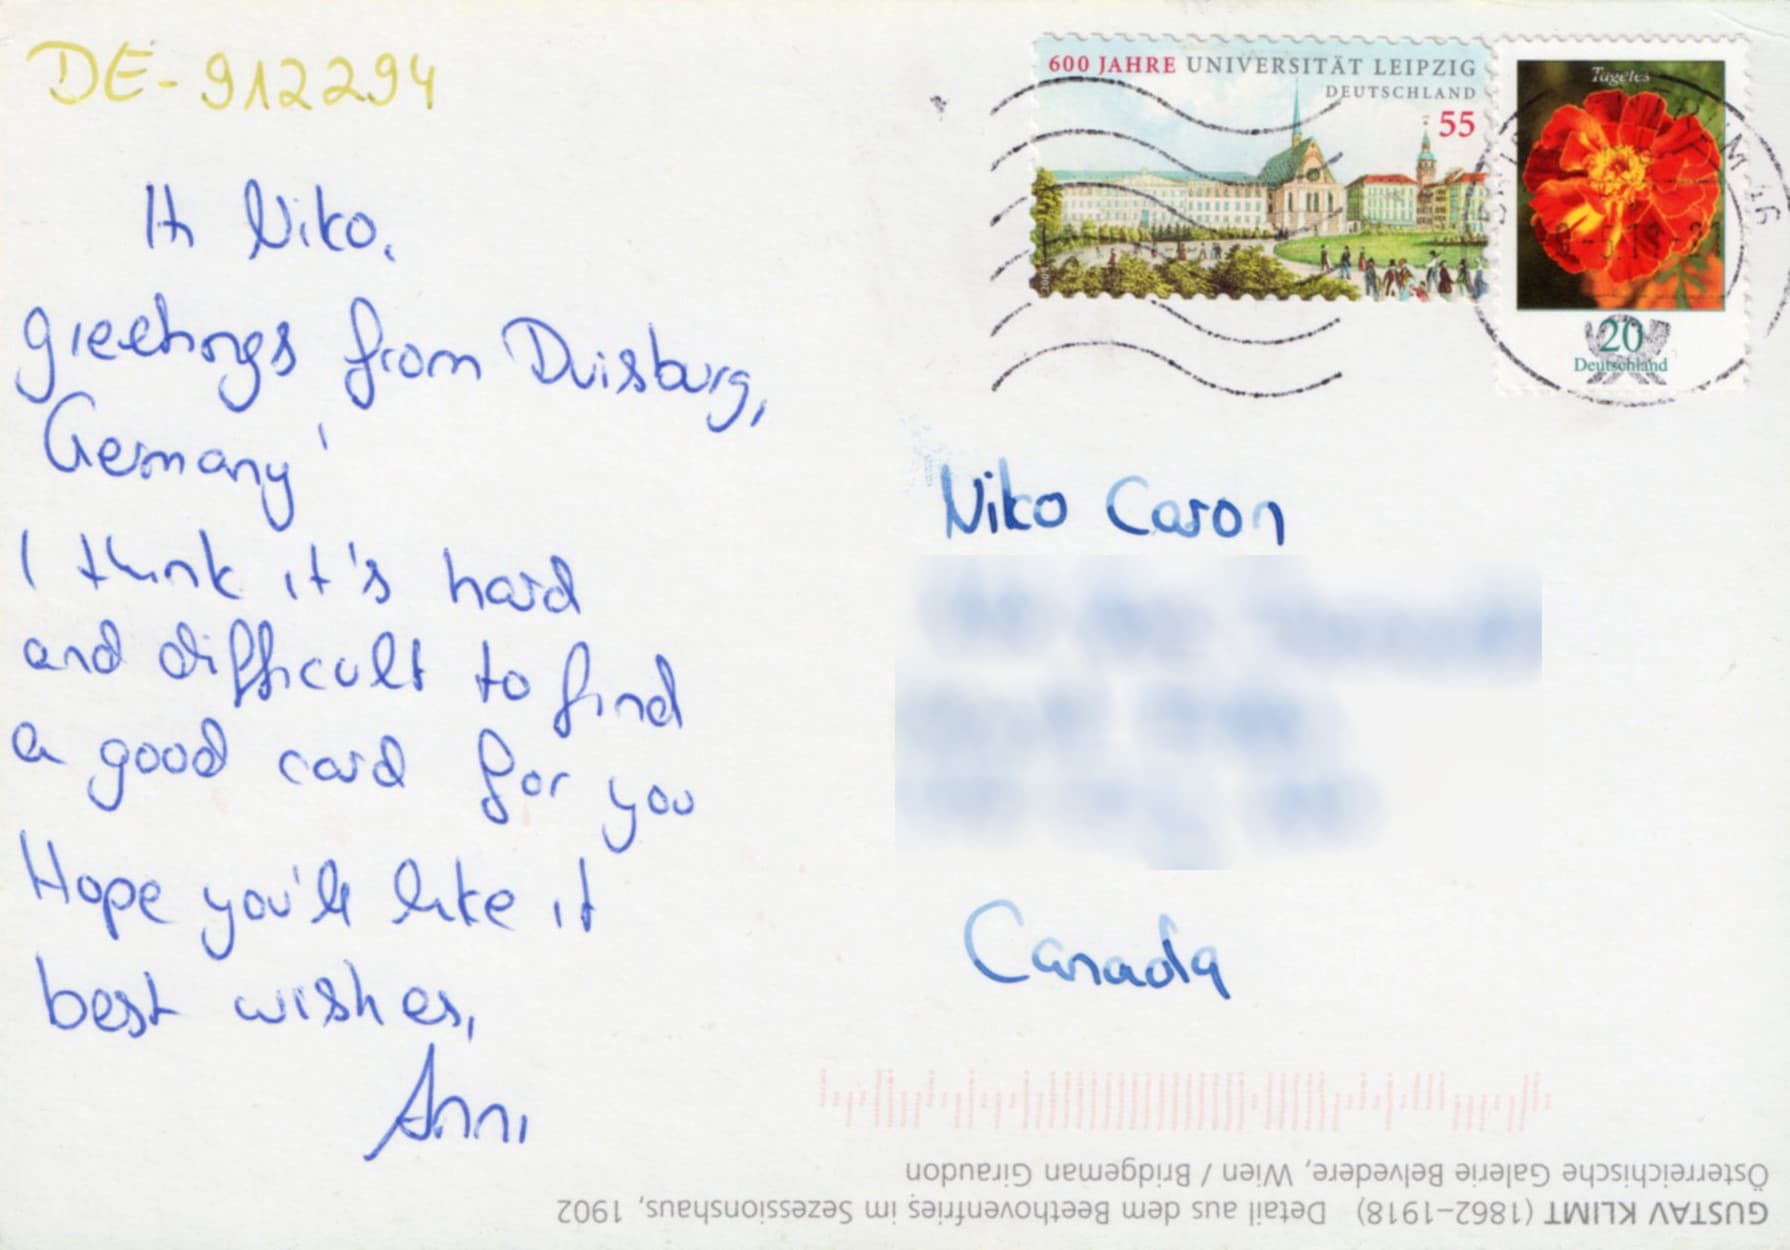 DE-912294
Hi Niko,
greetings from Duisburg,
Germany!
I think it's hard
and difficult to find
a good card for you
Hope you'll like it
best wishes,
Anni
600 JAHRE UNIVERSITÄT LEIPZIG
DEUTSCHLAND
55
Tagetes
20
Deutschland
Niko Caron
Canada
GUSTAV KLIMT (1862–1918) Detail aus dem Beethovenfries im Sezessionshaus, 1902
Österreichische Galerie Belvedere, Wien / Bridgeman Giraudon